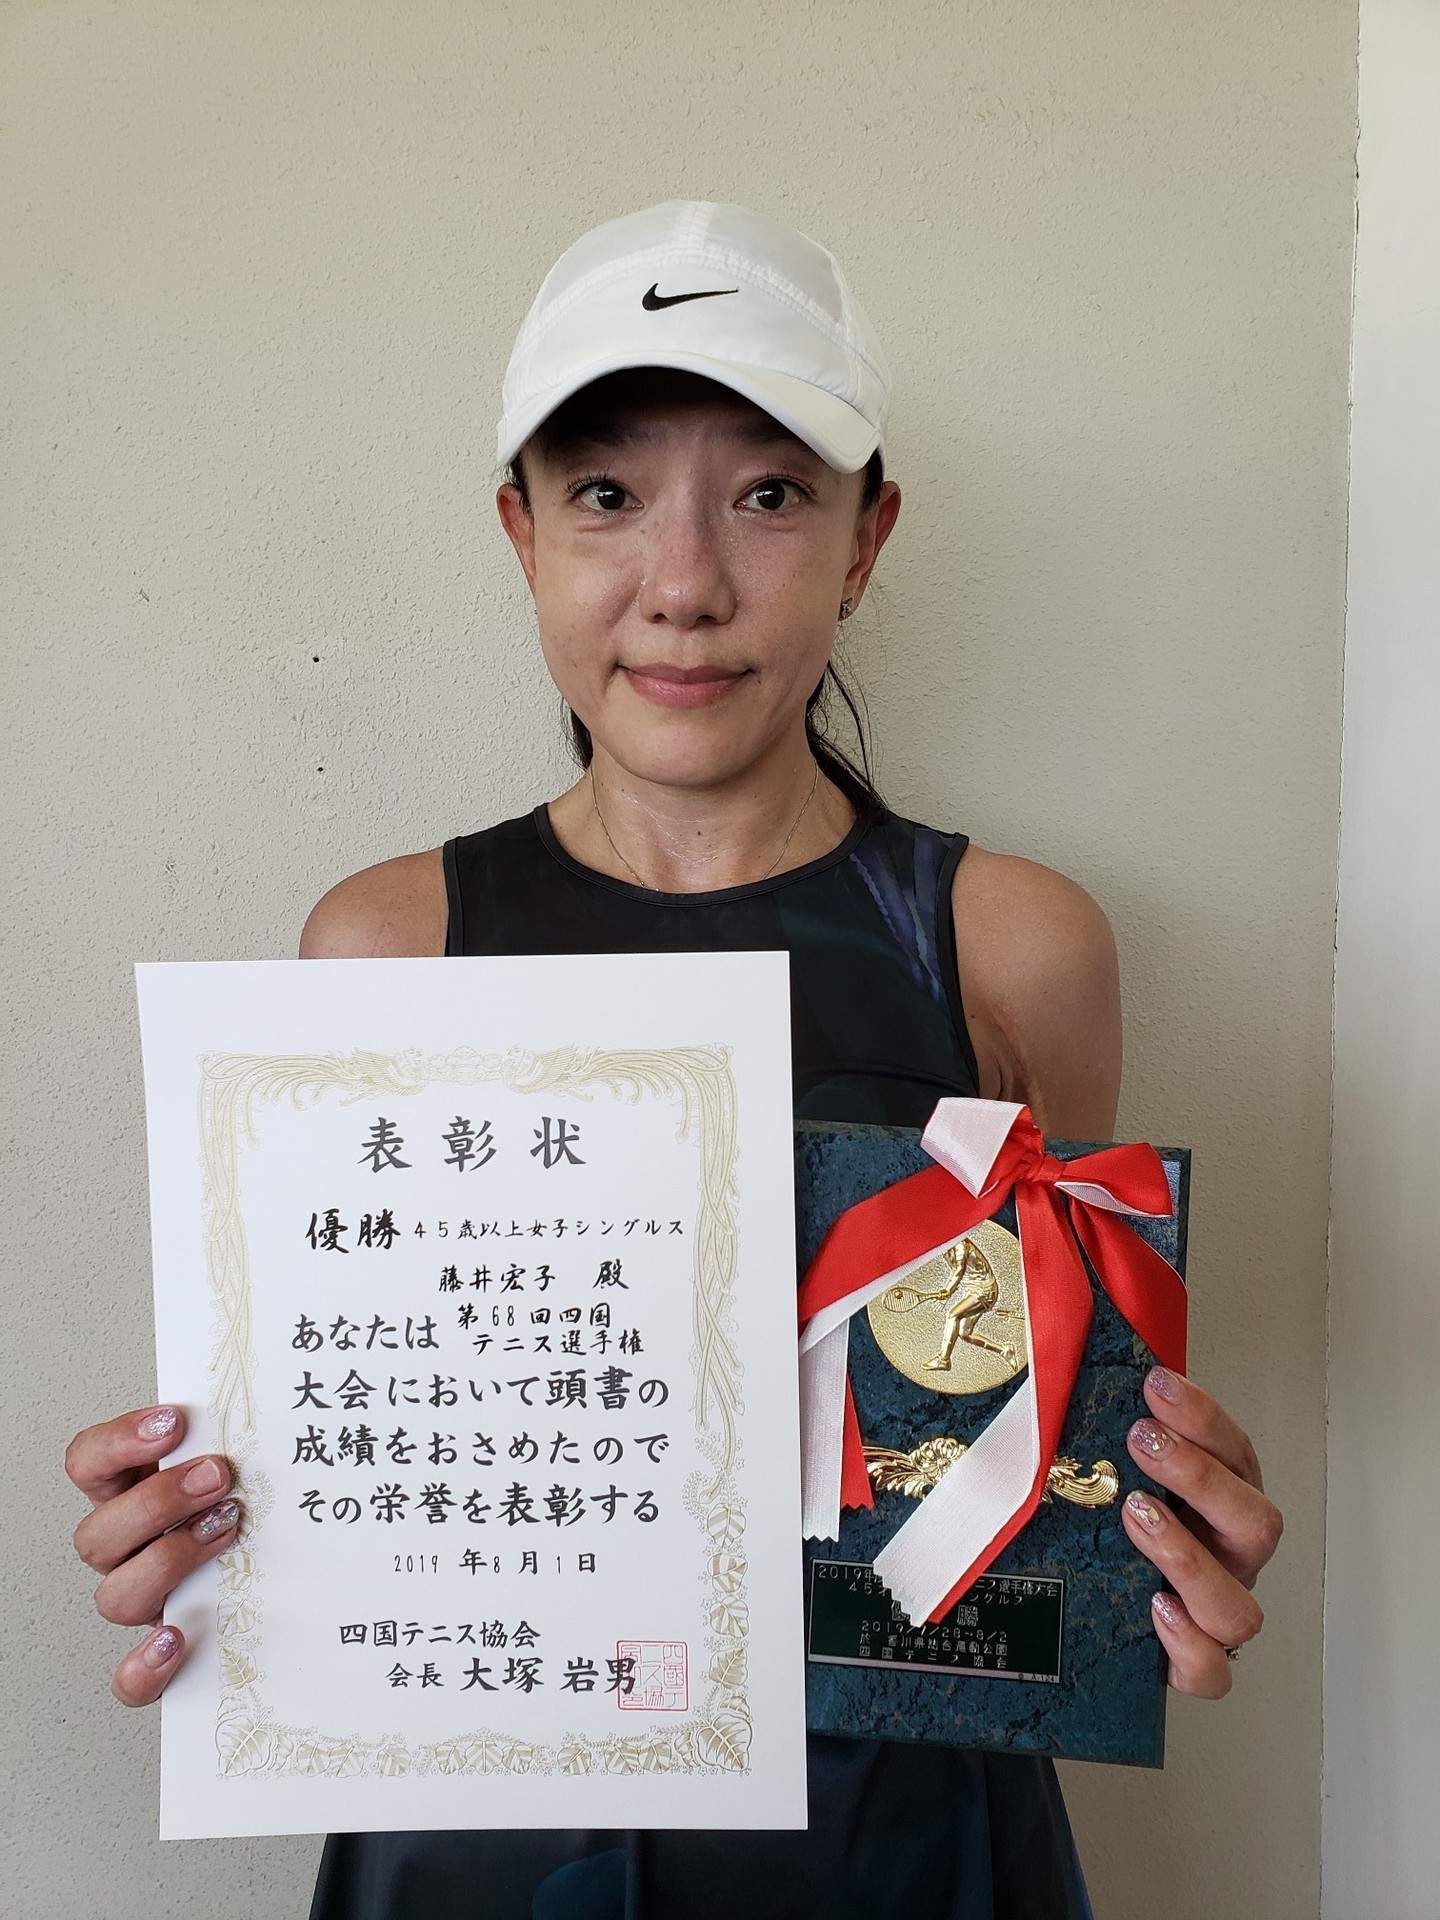 表彰状
優勝 45歳以上女子シングルス
藤井宏子 殿
あなたは 第68回四国
テニス選手権
大会において頭書の
成績をおさめたので
その栄誉を表彰する
2019 年 8 月 1 日
四国テニス協会
会長 大塚 岩男
2019年 ニス選手権大会
45 ングルス
優 勝
2019/7/28~8/2
於 香川県総合運動公園
四国テニス協会
A-124